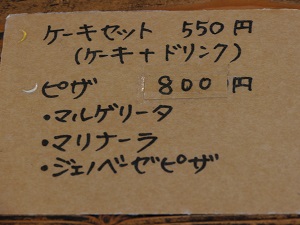 ケーキセット 550円
(ケーキ+ドリンク)
ピザ 800円
・マルゲリータ
・マリナーラ
・ジェノベーゼピザ